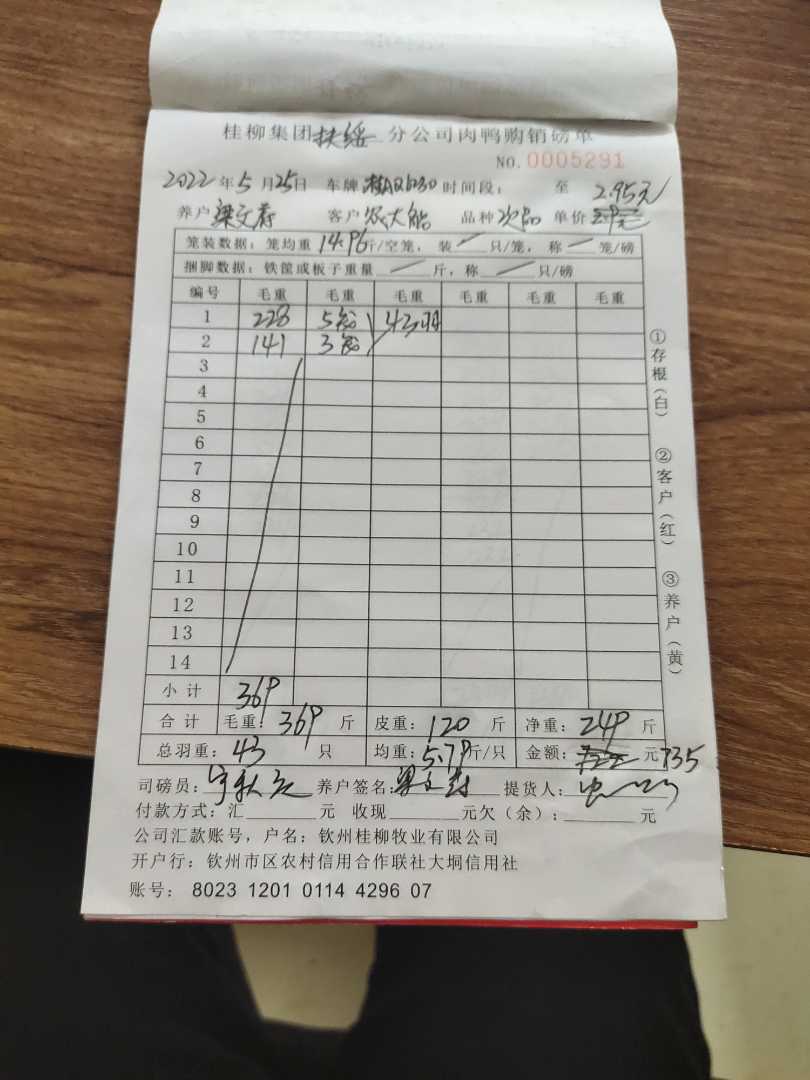 桂柳集团扶绥分公司肉鸭购销磅单
NO. 0005291
2022年5月25日 车牌 时间段： 至 2.95元
养户 梁文 客户 农大 品种 次品 单价
笼装数据：笼均重 14.96斤/空笼，装 — 只/笼，称 — 笼/磅
捆脚数据：铁筐或板子重量 — 斤，称 — 只/磅
编号 毛重 毛重 毛重 毛重 毛重 毛重
1 228 5 43羽
2 141 3
3
4
5
6
7
8
9
10
11
12
13
14
小计 369
合计 毛重：369 斤 皮重：120 斤 净重：249 斤
总羽重：43 只 均重：5.79斤/只 金额： 元 735
司磅员： 养户签名： 提货人：
付款方式：汇 元 收现 元欠（余）： 元
公司汇款账号，户名：钦州桂柳牧业有限公司
开户行：钦州市区农村信用合作联社大垌信用社
账号： 8023 1201 0114 4296 07
①存根（白） ②客户（红） ③养户（黄）